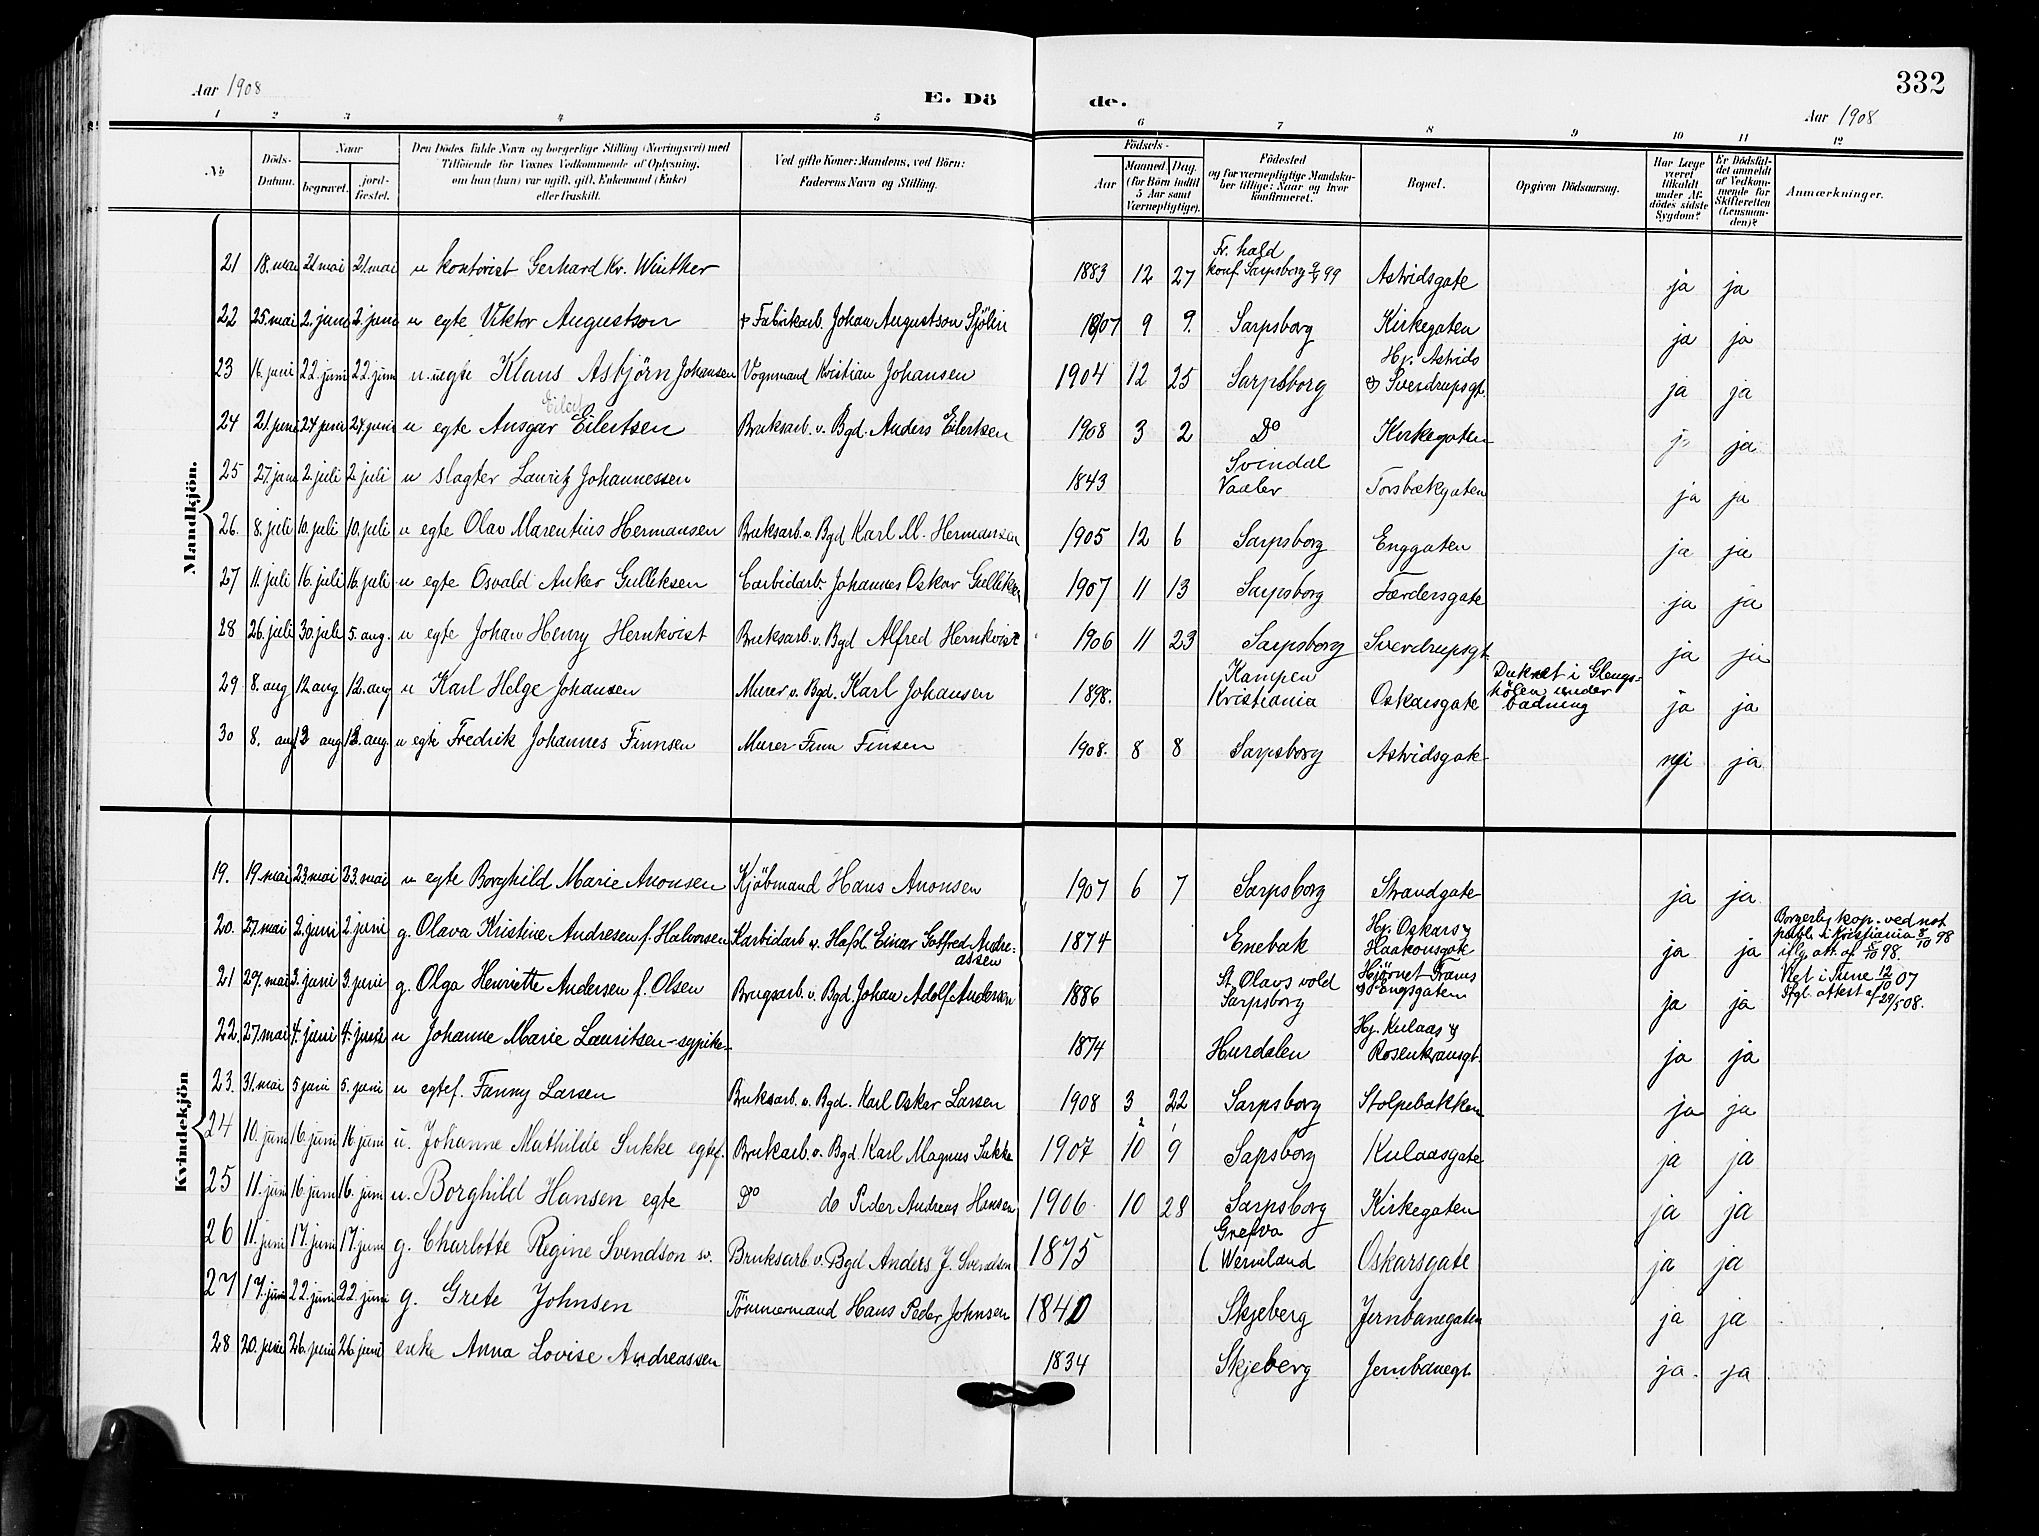 332
Aar 1908
E. Döde.
Aar 1908
1 2 3 4 5 6 7 8 9 10 11 12
No
Döds-Datum.
Naar
begravet.
jordfæstet.
Den Dödes fulde Navn og borgerlige Stilling (Næringsvei) med
Tilföiende for Voxnes Vedkommende af Oplysning,
om han (hun) var ugift, gift, Enkemand (Enke)
eller fraskilt.
Ved gifte Koner: Mandens, ved Börn:
Faderens Navn og Stilling.
Födsels-
Aar
Maaned. Dag.
(for Börn indtil
5 Aar samt
Værnepligtige).
Födested
og for værnepligtige Mandskaber tillige: Naar og hvor
konfirmeret.
Bopæl.
Opgiven Dödsaarsag.
Har Læge været tilkaldt under Afdödes sidste Sygdom?
Er Dödsfaldet anmeldt af Vedkommende for Skifteretten (Lensmanden)?
Anmærkninger.
Mandkjön.
21 18. mai 21 mai 21. mai u kontorist Gerhard Kr. Winther 1883 12 27 Fr. hald konf. Sarpsborg 99 Astridsgate ja ja
22 25. mai 2. juni 2. juni u egte Viktor Augustson Fabrikarb. Johan Augustson Sjölin 1907 9 9. Sarpsborg Kirkegaten ja ja
23 16. juni 22. juni 22. juni u. uegte Klaus Asbjörn Johansen Vognmand Kristian Johansen 1904 12 25 Sarpsborg Hj. Astrids og Sverdrupsgt. ja ja
24 21. juni 24 juni 24 juni u egte Ansgar Eilertsen Bruksarb. v. Bgd. Anders Eilertsen 1908 3 2 Do Kirkegaten ja ja
25 27. juni 2. juli 2 juli u slagter Lauritz Johannessen 1843 Svindal Vaaler Torsbækgaten ja ja
26. 8. juli 10. juli 10. juli u egte Olav Marentius Hermansen Bruksarb. v. Bgd Karl M. Hermansen 1905 12 6 Sarpsborg Enggaten ja ja
27 11. juli 16. juli 16. juli u egte Osvald Anker Gulliksen Carbidarb. Johannes Oskar Gulliksen 1907 11 13 Sarpsborg Færdersgate ja ja
28 26. juli 30. juli 5. aug. u egte Johan Henry Hernkvist Bruksarb. v. Bgd Alfred Hernkvist 1906 11 23 Sarpsborg Sverdrupsgt. ja ja
29 8. aug 12 aug 12. aug u Karl Helge Johansen Murer v. Bgd. Karl Johansen 1898. Kampen Kristiania Oskarsgate Druknet i Glengshölen under badning ja ja
30 8. aug 12 aug 12. aug. u egte Fredrik Johannes Finnsen Murer Finn Finsen 1908. 8 8 Sarpsborg Astridsgate nei ja
Kvindekjön
19. 19. mai 23 mai 23. mai u egte Borghild Marie Aronsen Kjöbmand Hans Aronsen 1907 6 7 Sarpsborg Strandgate ja ja
20. 27. mai 2. juni 2 juni g. Olava Kristine Andresen f. Halvorsen Karbidarb v. Hafsl. Einar Gotfred Andreassen 1874 Enebak Hj. Oskars og Haakonsgate ja ja Borgerlig kop. ved not publ. i Kristiania 8/10 98 iflg. att. af 8/10 98.
21 29. mai 3. juni 3. juni g. Olga Henriette Andersen f. Olsen Brugsarb. v. Bgd. Johan Adolf Andersen 1886 St. Olavs vold Sarpsborg Hjörnet Frams og Engsgaten ja ja Viet i Tune 12/10 07 Ifgl. attest af 29/5 08.
22. 27. mai 4. juni 4. juni u Johanne Marie Lauritsen - sypike 1874 Hurdalen Hj. Kulaas og Rosenkransgt. ja ja
23. 31. mai 5 juni 5. juni u egtef. Fanny Larsen Bruksarb. v. Bgd. Karl Oskar Larsen 1908 3 22 Sarpsborg Stolpebakken ja ja
24 10. juni 16. juni 16. juni u. Johanne Mathilde Sukke egtef. Brukarb. v. Bgd. Karl Magnus Sukke 1907 10 9 Sapsborg Kulaasgate ja ja
25 11. juni 16. juni 16. juni u. Borghild Hansen egte Do do Peder Andreas Hansen 1906. 10 28 Sarpsborg Kirkegaten ja ja
26 11. juni 17. juni 17. juni g. Charlotte Regine Svendson sv. Bruksarb. v. Bgd Anders J. Svendsen 1875 Grefva (Wermland Oskarsgate ja ja
27 17. juni 22. juni 22. juni g. Grete Johnsen Tömmermand Hans Peder Johnsen 1840 Skjeberg Jernbanegaten ja ja
28 20. juni 26. juni 26. juni enke Anna Lovise Andreassen 1834 Skjeberg Jernbanegt. ja. ja